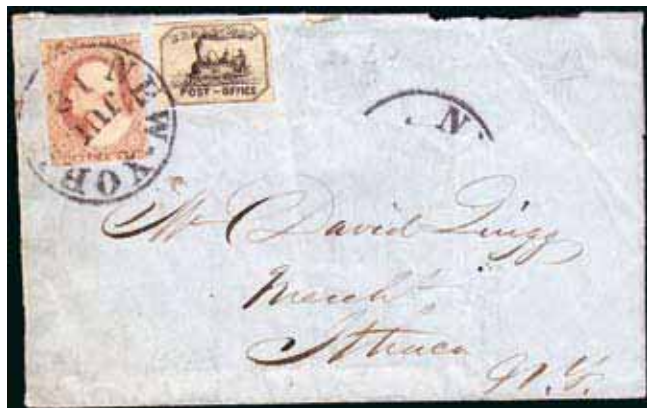 NEW-YOR
JUL
POST-OFFICE
N.
Mr David Quigg
Merch't
Ithaca
N.Y.